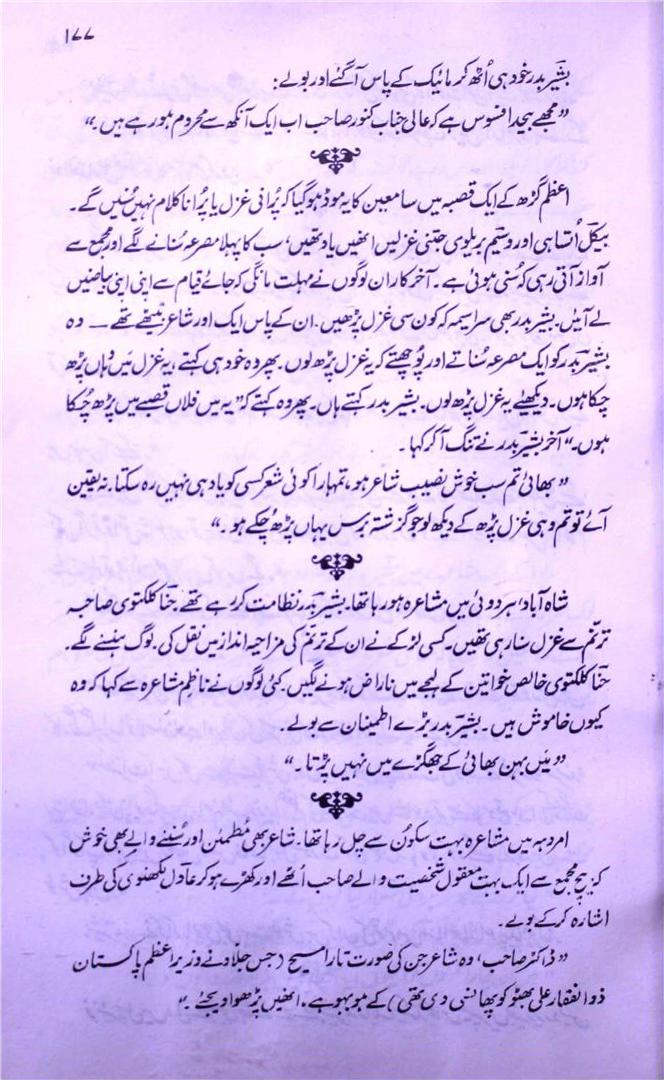 ۱۷۷
بشیر بدر خود ہی اُٹھ کر مائیک کے پاس آ گئے اور بولے:
”مجھے بیحد افسوس ہے کہ عالی جناب کنور صاحب اب ایک آنکھ سے محروم ہو رہے ہیں۔“
اعظم گڑھ کے ایک قصبہ میں سامعین کا یہ موڈ ہو گیا کہ پُرانی غزل یا پُرانا کلام نہیں سُنیں گے۔
بیکل اُتساہی اور وسیم بریلوی جتنی غزلیں انھیں یاد تھیں، سب کا پہلا مصرعہ سُنانے لگے اور مجمع سے
آواز آتی رہی کہ سُنی ہوئی ہے۔ آخر کار ان لوگوں نے مہلت مانگی کہ جائے قیام سے اپنی اپنی بیاضیں
لے آئیں۔ بشیر بدر بھی سراسیمہ کہ کون سی غزل پڑھیں۔ ان کے پاس ایک اور شاعر بیٹھے تھے — وہ
بشیر بدر کو ایک مصرعہ سُناتے اور پُوچھتے کہ یہ غزل پڑھ لوں۔ پھر وہ خود ہی کہتے، یہ غزل میں وہاں پڑھ
چکا ہوں۔ دیکھئے یہ غزل پڑھ لوں۔ بشیر بدر کہتے ہاں۔ پھر وہ کہتے کہ ”یہ میں فلاں قصبے میں پڑھ چُکا
ہوں۔“ آخر بشیر بدر نے تنگ آ کر کہا۔
”بھائی تم سب خوش نصیب شاعر ہو، تمہارا کوئی شعر کسی کو یاد ہی نہیں رہ سکتا۔ نہ یقین
آئے تو تم وہی غزل پڑھ کے دیکھ لو جو گزشتہ برس یہاں پڑھ چُکے ہو۔“
شاہ آباد، ہردوئی میں مشاعرہ ہو رہا تھا۔ بشیر بدر نظامت کر رہے تھے۔ حنا کلکتوی صاحبہ
ترنّم سے غزل سنا رہی تھیں۔ کسی لڑکے نے ان کے ترنم کی مزاحیہ انداز میں نقل کی۔ لوگ ہنسنے لگے۔
حنا کلکتوی خالص خواتین کے لہجے میں ناراض ہونے لگیں۔ کئی لوگوں نے ناظمِ مشاعرہ سے کہا کہ وہ
کیوں خاموش ہیں۔ بشیر بدر بڑے اطمینان سے بولے۔
”میں بہن بھائی کے جھگڑے میں نہیں پڑتا۔“
امروہہ میں مشاعرہ بہت سکُون سے چل رہا تھا۔ شاعر بھی مطمئن اور سُننے والے بھی خوش
کہ بیچ مجمع سے ایک بہت معقول شخصیت والے صاحب اُٹھے اور کھڑے ہو کر عادل لکھنوی کی طرف
اشارہ کر کے بولے۔
”ڈاکٹر صاحب، وہ شاعر جن کی صورت تارا مسیح (جس جلاد نے وزیر اعظم پاکستان
ذوالفقار علی بھٹو کو پھانسی دی تھی) کے ہو بہو ہے، انھیں پڑھوا دیجئے۔“